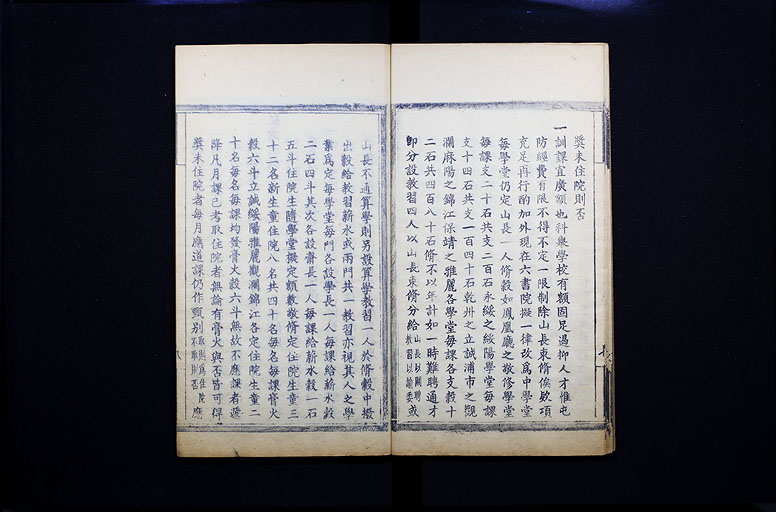 獎未住院則否
一訓課宜廣額也科與學校有額固足遏抑人才惟屯
防經費有限不得不定一限制除山長束脩俟欵項
充足再行酌加外現在六書院擬一律改爲中學堂
每學堂仍定山長一人脩穀如鳳凰廳之敬修學堂
每課支二十石共支二百石永綏之綏陽學堂每課
支十四石共支一百四十石乾州之立誠浦市之觀
瀾麻陽之錦江保靖之雅麗各學堂每課各支穀十
二石共四百八十石脩不以年計如一時難聘通才
即分設教習四人以山長束脩分給山長以關聘教習以諭委或
山長不通算學則另設算學教習一人於脩穀中撥
出穀給教習薪水或兩門共一教習亦視其人之學
業爲定每學堂每門各設學長一人每課給薪水穀
二石四斗其次各設齋長一人每課給薪水穀一石
五斗住院生隨學堂擬定額數敬脩定住院生童三
十二名新生童住院八名共四十名每名每課膏火
穀六斗立誠綏陽雅麗觀瀾錦江各定住院生童二
十名每名每課均發膏火穀六斗無故不應課者遞
降凡月課已考取住院者無論有膏火與否皆可得
獎未住院者每月應道課仍作甄別取則爲住院不取則否應